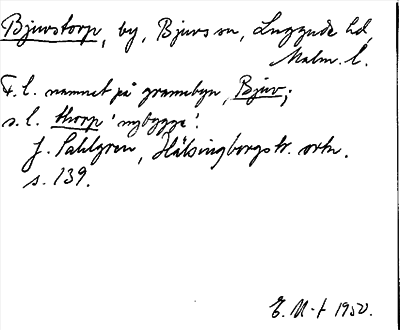 Bjuvstorp, by, Bjuvs sn, Luggude hd,
Malm. l.
F. l. namnet på grannbyn, Bjuv;
s. l. thorp 'nybygge'.
J. Sahlgren, Hälsingborgstr. ortn.
s. 139.
E. M-t 1950.